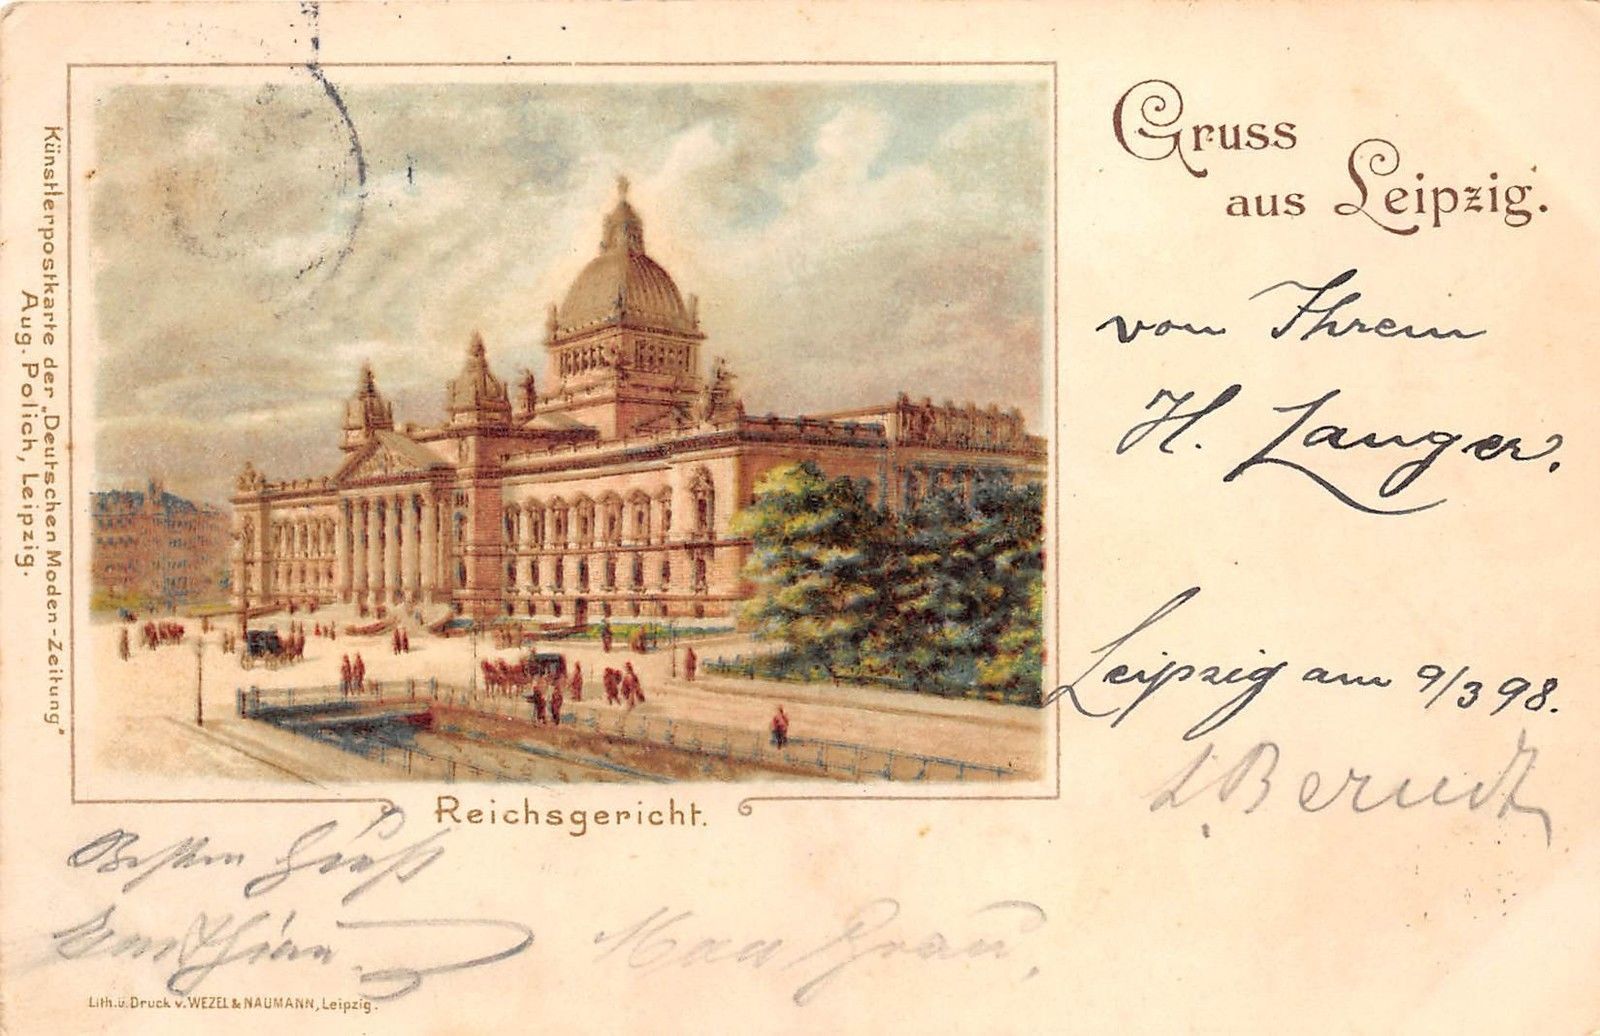 Gruss
aus Leipzig.
von Ihrem
H. Langer.
Leipzig am 9/3 98.
Berndt
Künstlerpostkarte der „Deutschen Moden-Zeitung"
Aug. Polich, Leipzig.
Reichsgericht.
Besten Gruß
Max
Lith. u. Druck v. WEZEL & NAUMANN, Leipzig.